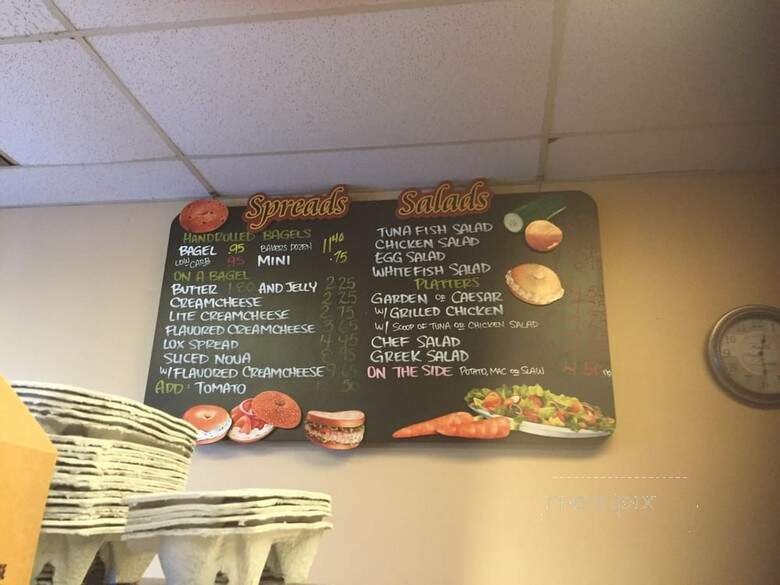 Spreads
HANDROLLED BAGELS
BAGEL .95 BAKERS DOZEN 11.40
LOW CARB .95 MINI .75
ON A BAGEL
BUTTER 1.80 AND JELLY 2.25
CREAMCHEESE 2.25
LITE CREAMCHEESE 2.75
FLAVORED CREAMCHEESE 3.65
LOX SPREAD 4.95
SLICED NOVA 8.95
W/ FLAVORED CREAMCHEESE 9.65
ADD: TOMATO .50
Salads
TUNA FISH SALAD
CHICKEN SALAD
EGG SALAD
WHITEFISH SALAD
PLATTERS
GARDEN OR CAESAR
W/ GRILLED CHICKEN
W/ SCOOP OF TUNA OR CHICKEN SALAD
CHEF SALAD
GREEK SALAD
ON THE SIDE POTATO, MAC OR SLAW